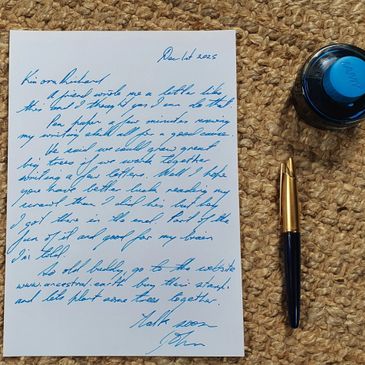 Dec 1st 2025
Kia ora Richard
A friend wrote me a letter like
this and I thought yes I can do that.
Pen paper a few minutes moving
my writing stick all for a good cause.
He said we could grow great
big trees if we work together
writing a few letters. Well I hope
you have better luck reading my
scrawl than I did his but hey
I got there in the end. Part of the
fun of it and good for my brain
I'm told.
So old buddy, go to the website
www.ancestral.earth buy their stamps
and lets plant some trees together.
Talk soon
John
LAMY